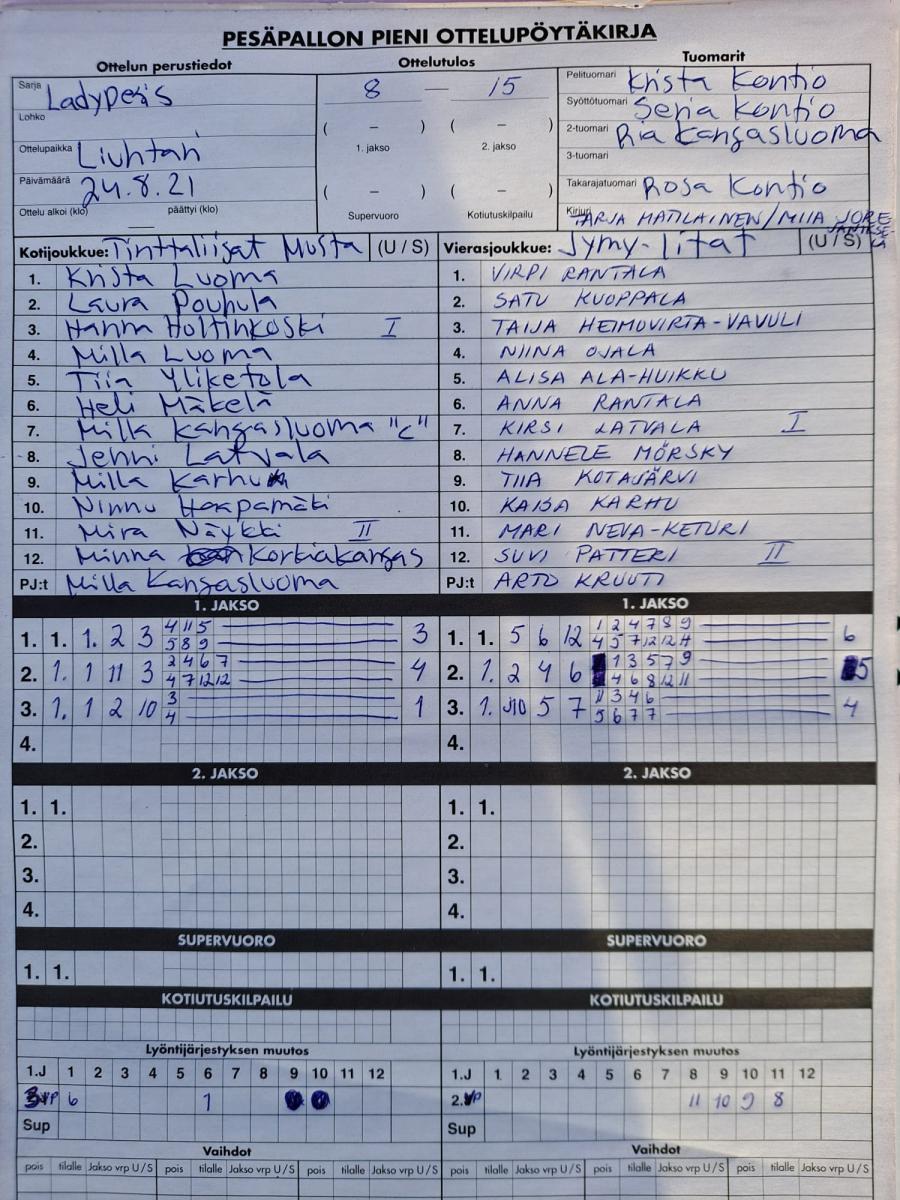 PESÄPALLON PIENI OTTELUPÖYTÄKIRJA
Ottelun perustiedot
Sarja Ladypesis
Lohko
Ottelupaikka Liuhtari
Päivämäärä 24.8.21
Ottelu alkoi (klo) päättyi (klo)
Ottelutulos
8 — 15
( – ) ( – )
1. jakso 2. jakso
( – ) ( – )
Supervuoro Kotiutuskilpailu
Tuomarit
Pelituomari Krista Kontio
Syöttötuomari Senja Kontio
2-tuomari Ria Kangasluoma
3-tuomari
Takarajatuomari Rosa Kontio
Kirjuri TARJA MATILAINEN/MIIA JORE
Kotijoukkue: Tinttaliisat Musta (U / S)
1. Krista Luoma
2. Laura Pouhula
3. Hanna Holtinkoski I
4. Milla Luoma
5. Tiia Yliketola
6. Heli Mäkelä
7. Milla Kangasluoma "C"
8. Jenni Latvala
9. Milla Karhu
10. Ninnu Haapamäki
11. Mira Näykki II
12. Minna Kortiakangas
PJ:t Milla Kangasluoma
Vierasjoukkue: Jymy-litat (U / S)
1. VIRPI RANTALA
2. SATU KUOPPALA
3. TAIJA HEIMOVIRTA-VAVULI
4. NIINA OJALA
5. ALISA ALA-HUIKKU
6. ANNA RANTALA
7. KIRSI LATVALA I
8. HANNELE MÖRSKY
9. TIIA KOTAJÄRVI
10. KAISA KARHU
11. MARI NEVA-KETURI
12. SUVI PATTERI II
PJ:t ARTO KRUUTI
1. JAKSO
1. 1. 1. 2 3 4 11 5 3
5 8 9
2. 1. 1 11 3 2 4 6 7 4
4 7 12 12
3. 1. 1 2 10 3 1
4
4.
1. JAKSO
1. 1. 5 6 12 1 2 4 7 8 9 6
4 5 7 12 12 11
2. 1. 2 4 6 1 3 5 7 9 5
4 6 8 12 11
3. 1. J10 5 7 11 3 4 6 4
5 6 7 7
4.
2. JAKSO
1. 1.
2.
3.
4.
2. JAKSO
1. 1.
2.
3.
4.
SUPERVUORO
1. 1.
SUPERVUORO
1. 1.
KOTIUTUSKILPAILU
KOTIUTUSKILPAILU
Lyöntijärjestyksen muutos
1.J 1 2 3 4 5 6 7 8 9 10 11 12
3VP 6 1
Sup
Lyöntijärjestyksen muutos
1.J 1 2 3 4 5 6 7 8 9 10 11 12
2.VP 11 10 9 8
Sup
Vaihdot
pois tilalle Jakso vrp U / S pois tilalle Jakso vrp U / S pois tilalle Jakso vrp U / S
Vaihdot
pois tilalle Jakso vrp U / S pois tilalle Jakso vrp U / S pois tilalle Jakso vrp U / S